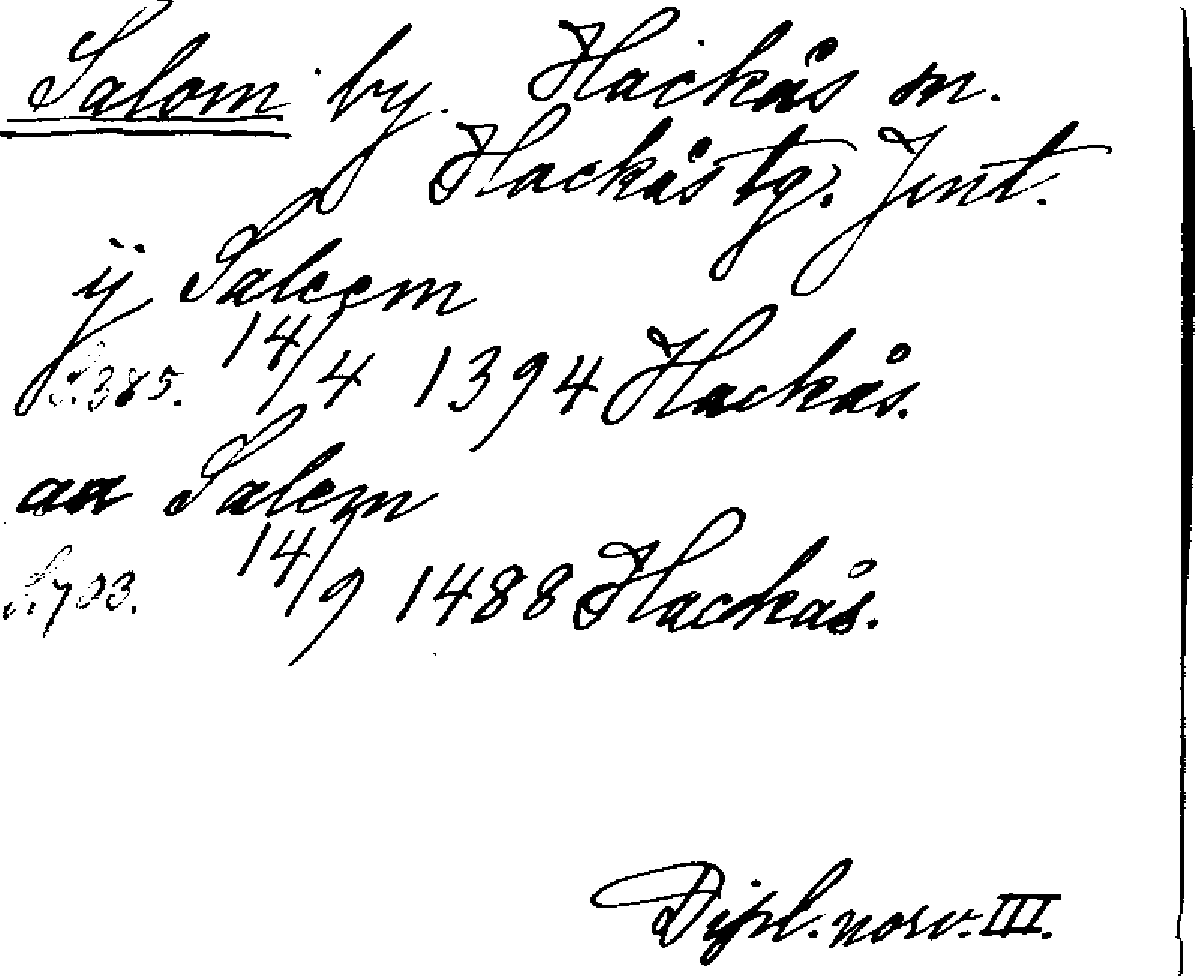 Salom by. Hackås sn.
Hackås tg. Jmt.
ij Saleem
S.385. 14/4 1394 Hackås.
aa Salem
S.703. 14/9 1488 Hackås.
Dipl. norv. III.